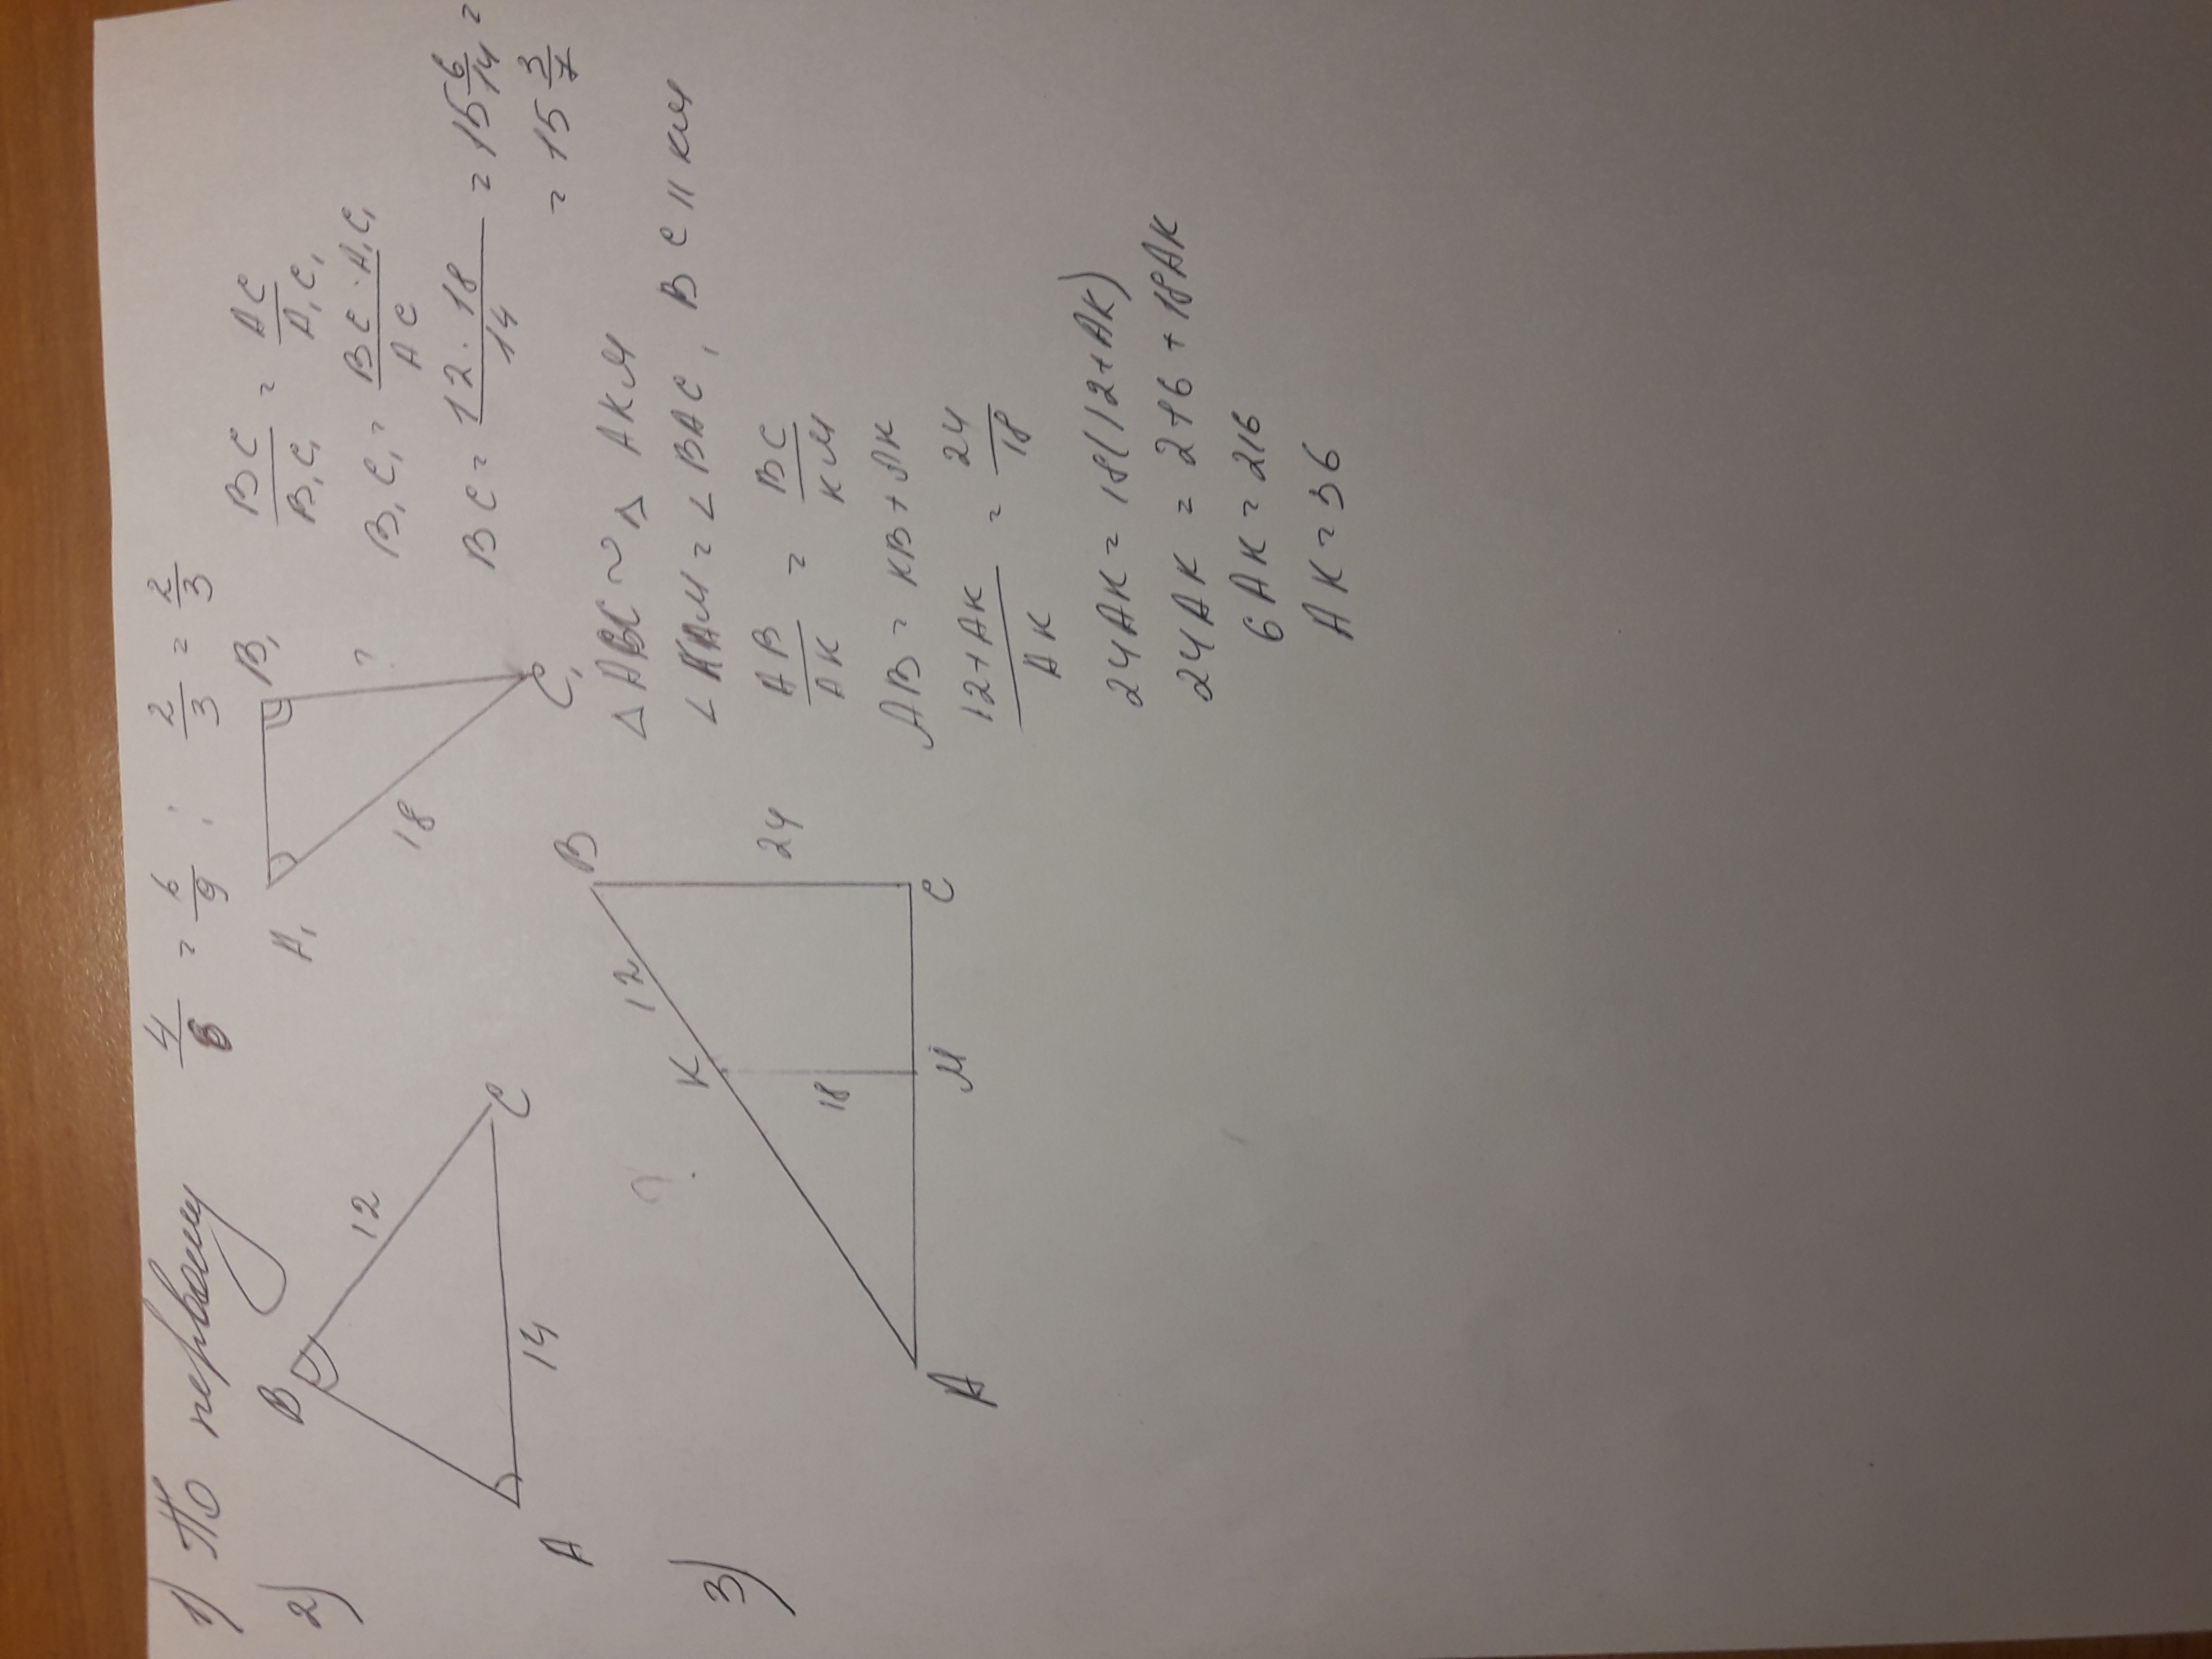 1) По первому 4/6 = 6/9 ; 2/3 = 2/3
2)
B
12
C
14
A
A₁
B₁
?
C₁
18
BC/B₁C₁ = AC/A₁C₁
B₁C₁ = BC · A₁C₁/AC
BC = 12 · 18/14 = 15 6/14 =
= 15 3/7
3)
B
12
K
?
24
18
A
M
C
△ABC ~ △AKM
∠KAM = ∠BAC, BC || KM
AB/AK = BC/KM
AB = KB + AK
12+AK/AK = 24/18
24AK = 18(12+AK)
24AK = 216 + 18AK
6AK = 216
AK = 36